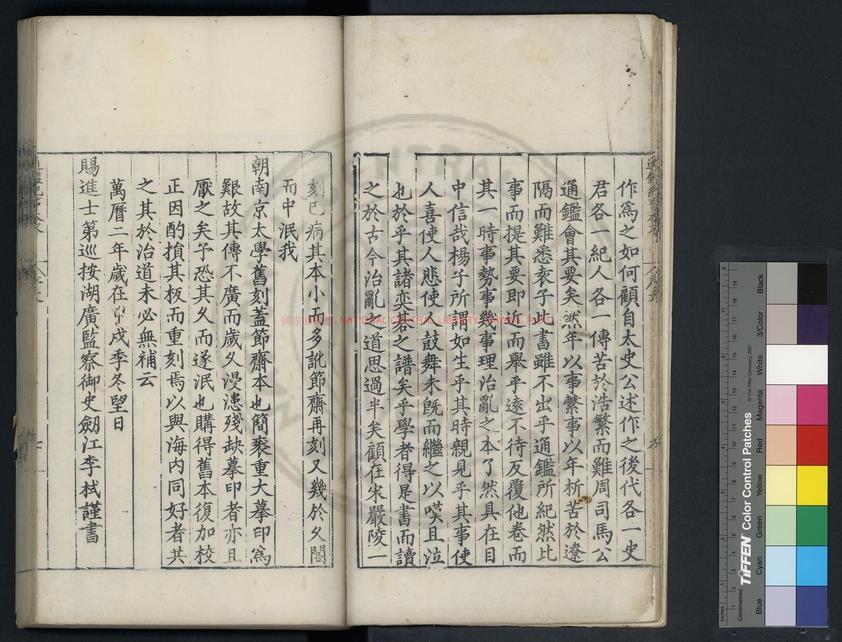 作為之如何顧自太史公述作之後代各一史
君各一紀人各一傳苦於浩繁而難周司馬公
通鑑會其要矣然年以事繫事以年析苦於遼
隔而難悉袁子此書雖不出乎通鑑所紀然比
事而提其要即近而舉乎遠不待反覆他卷而
其一時事勢事幾事理治亂之本了然具在目
中信哉楊子所謂如生乎其時親見乎其事使
人喜使人悲使人鼓舞未既而繼之以嘆且泣
也於乎其諸奕碁之譜矣乎學者得是書而讀
之於古今治亂之道思過半矣顧在宋嚴陵一
刻已病其本小而多訛節齋再刻又幾於久閣
而中泯我
朝南京太學舊刻蓋節齋本也簡袠重大摹印為
艱故其傳不廣而歲久漫漶殘缺摹印者亦且
厭之矣予恐其久而遂泯也購得舊本復加校
正因酌損其板而重刻焉以與海内同好者共
之其於治道未必無補云
萬曆二年歲在甲戌季冬望日
賜進士第巡按湖廣監察御史劒江李栻謹書
TIFFEN Color Control Patches
© The Tiffen Company, 2007
Centimetres
Inches
Blue
Cyan
Green
Yellow
Red
Magenta
White
3/Color
Black